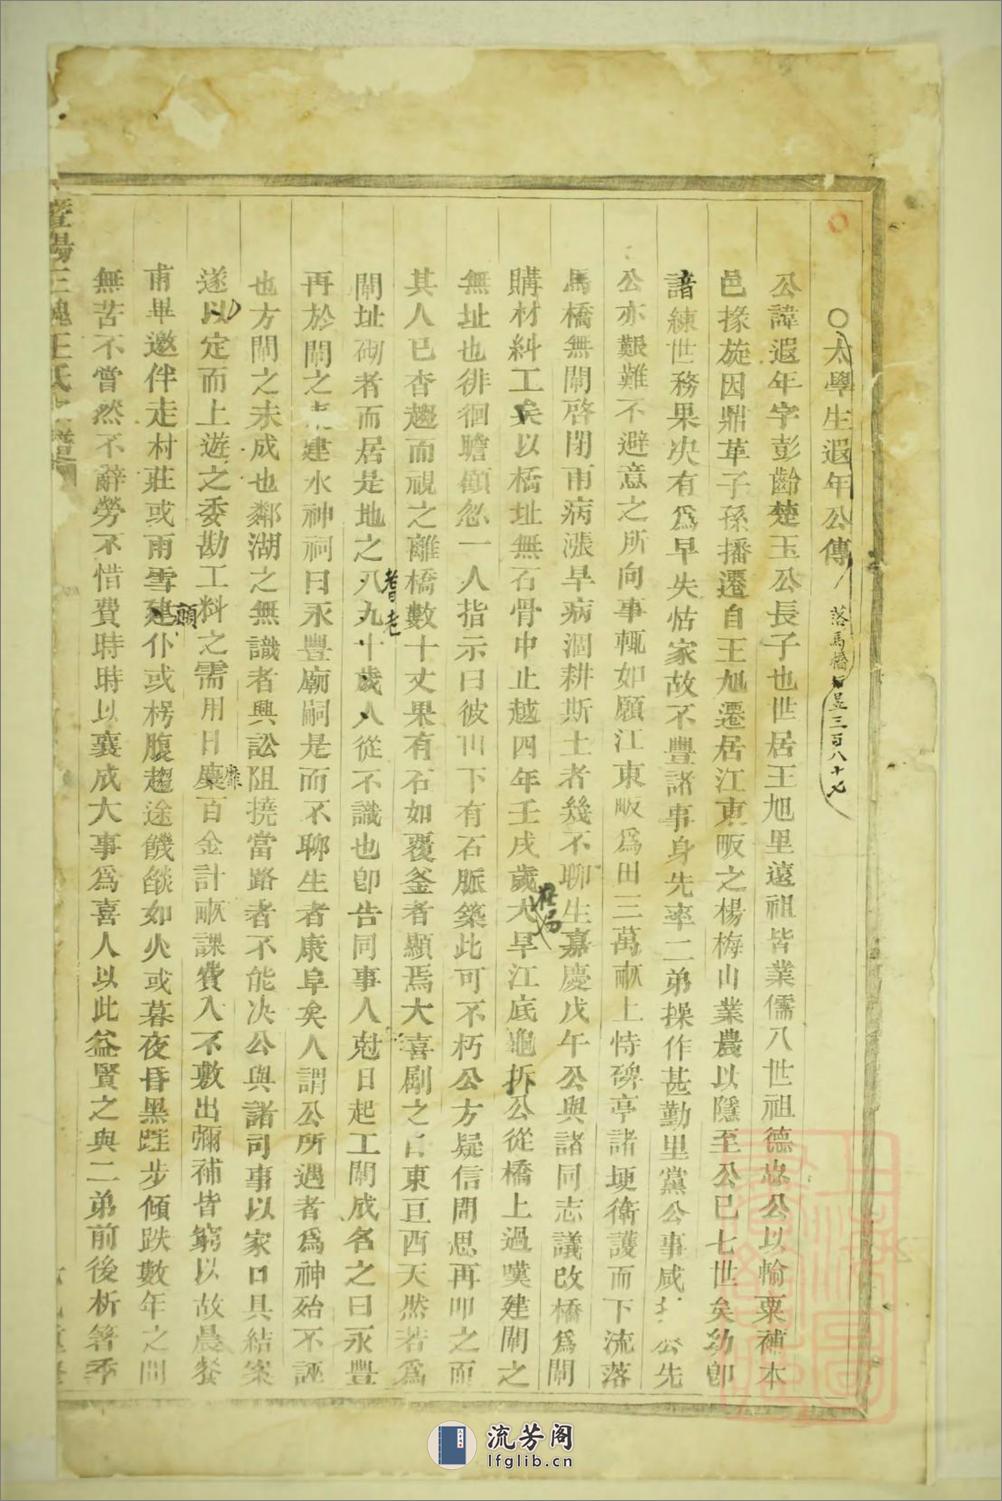 ○太學生遐年公傳
落馬橋 三百八十七
公諱遐年字彭齡楚玉公長子也世居王旭里遠祖皆業儒八世祖德忠公以輸粟補本
邑掾旋因鼎革子孫播遷自王旭遷居江東畈之楊梅山業農以隱至公已七世矣幼卽
諳練世務果決有爲早失怙家故不豐諸事身先率二弟操作甚勤里黨公事咸 公先
公亦艱難不避意之所向事輒如願江東畈爲田三萬畝上恃碑亭諸埂衛護而下流落
馬橋無閘啓閉雨病漲旱病涸耕斯土者幾不聊生嘉慶戊午公與諸同志議改橋爲閘
購材糾工矣以橋址無石骨中止越四年壬戌歲大旱江底龜拆公從橋上過嘆建閘之
無址也徘徊瞻顧忽一人指示曰彼田下有石脈築此可不朽公方疑信間思再叩之而
其人已杳趨而視之離橋數十丈果有石如覆釜者顯焉大喜劚之 東亘西天然若爲
閘址砌者而居是地之八九十歲人從不識也卽告同事人尅日起工閘成名之曰永豐
耆老
再於閘之 建水神祠曰永豐廟嗣是而不聊生者康阜矣人謂公所遇者爲神殆不誣
也方閘之未成也鄰湖之無識者興訟阻撓當路者不能決公與諸司事以家口具結案
遂以定而上遊之委勘工料之需用日糜百金計畝課費入不敷出彌補皆窮以故晨餐
靡
甫畢邀伴走村莊或雨雪建仆或枵腹趨途饑燄如火或暮夜昏黑跬步傾跌數年之間
顛
無苦不嘗然不辭勞不惜費時時以襄成大事爲喜人以此益賢之與二弟前後析箸季
暨陽王氏 譜
流芳阁
lfglib.cn